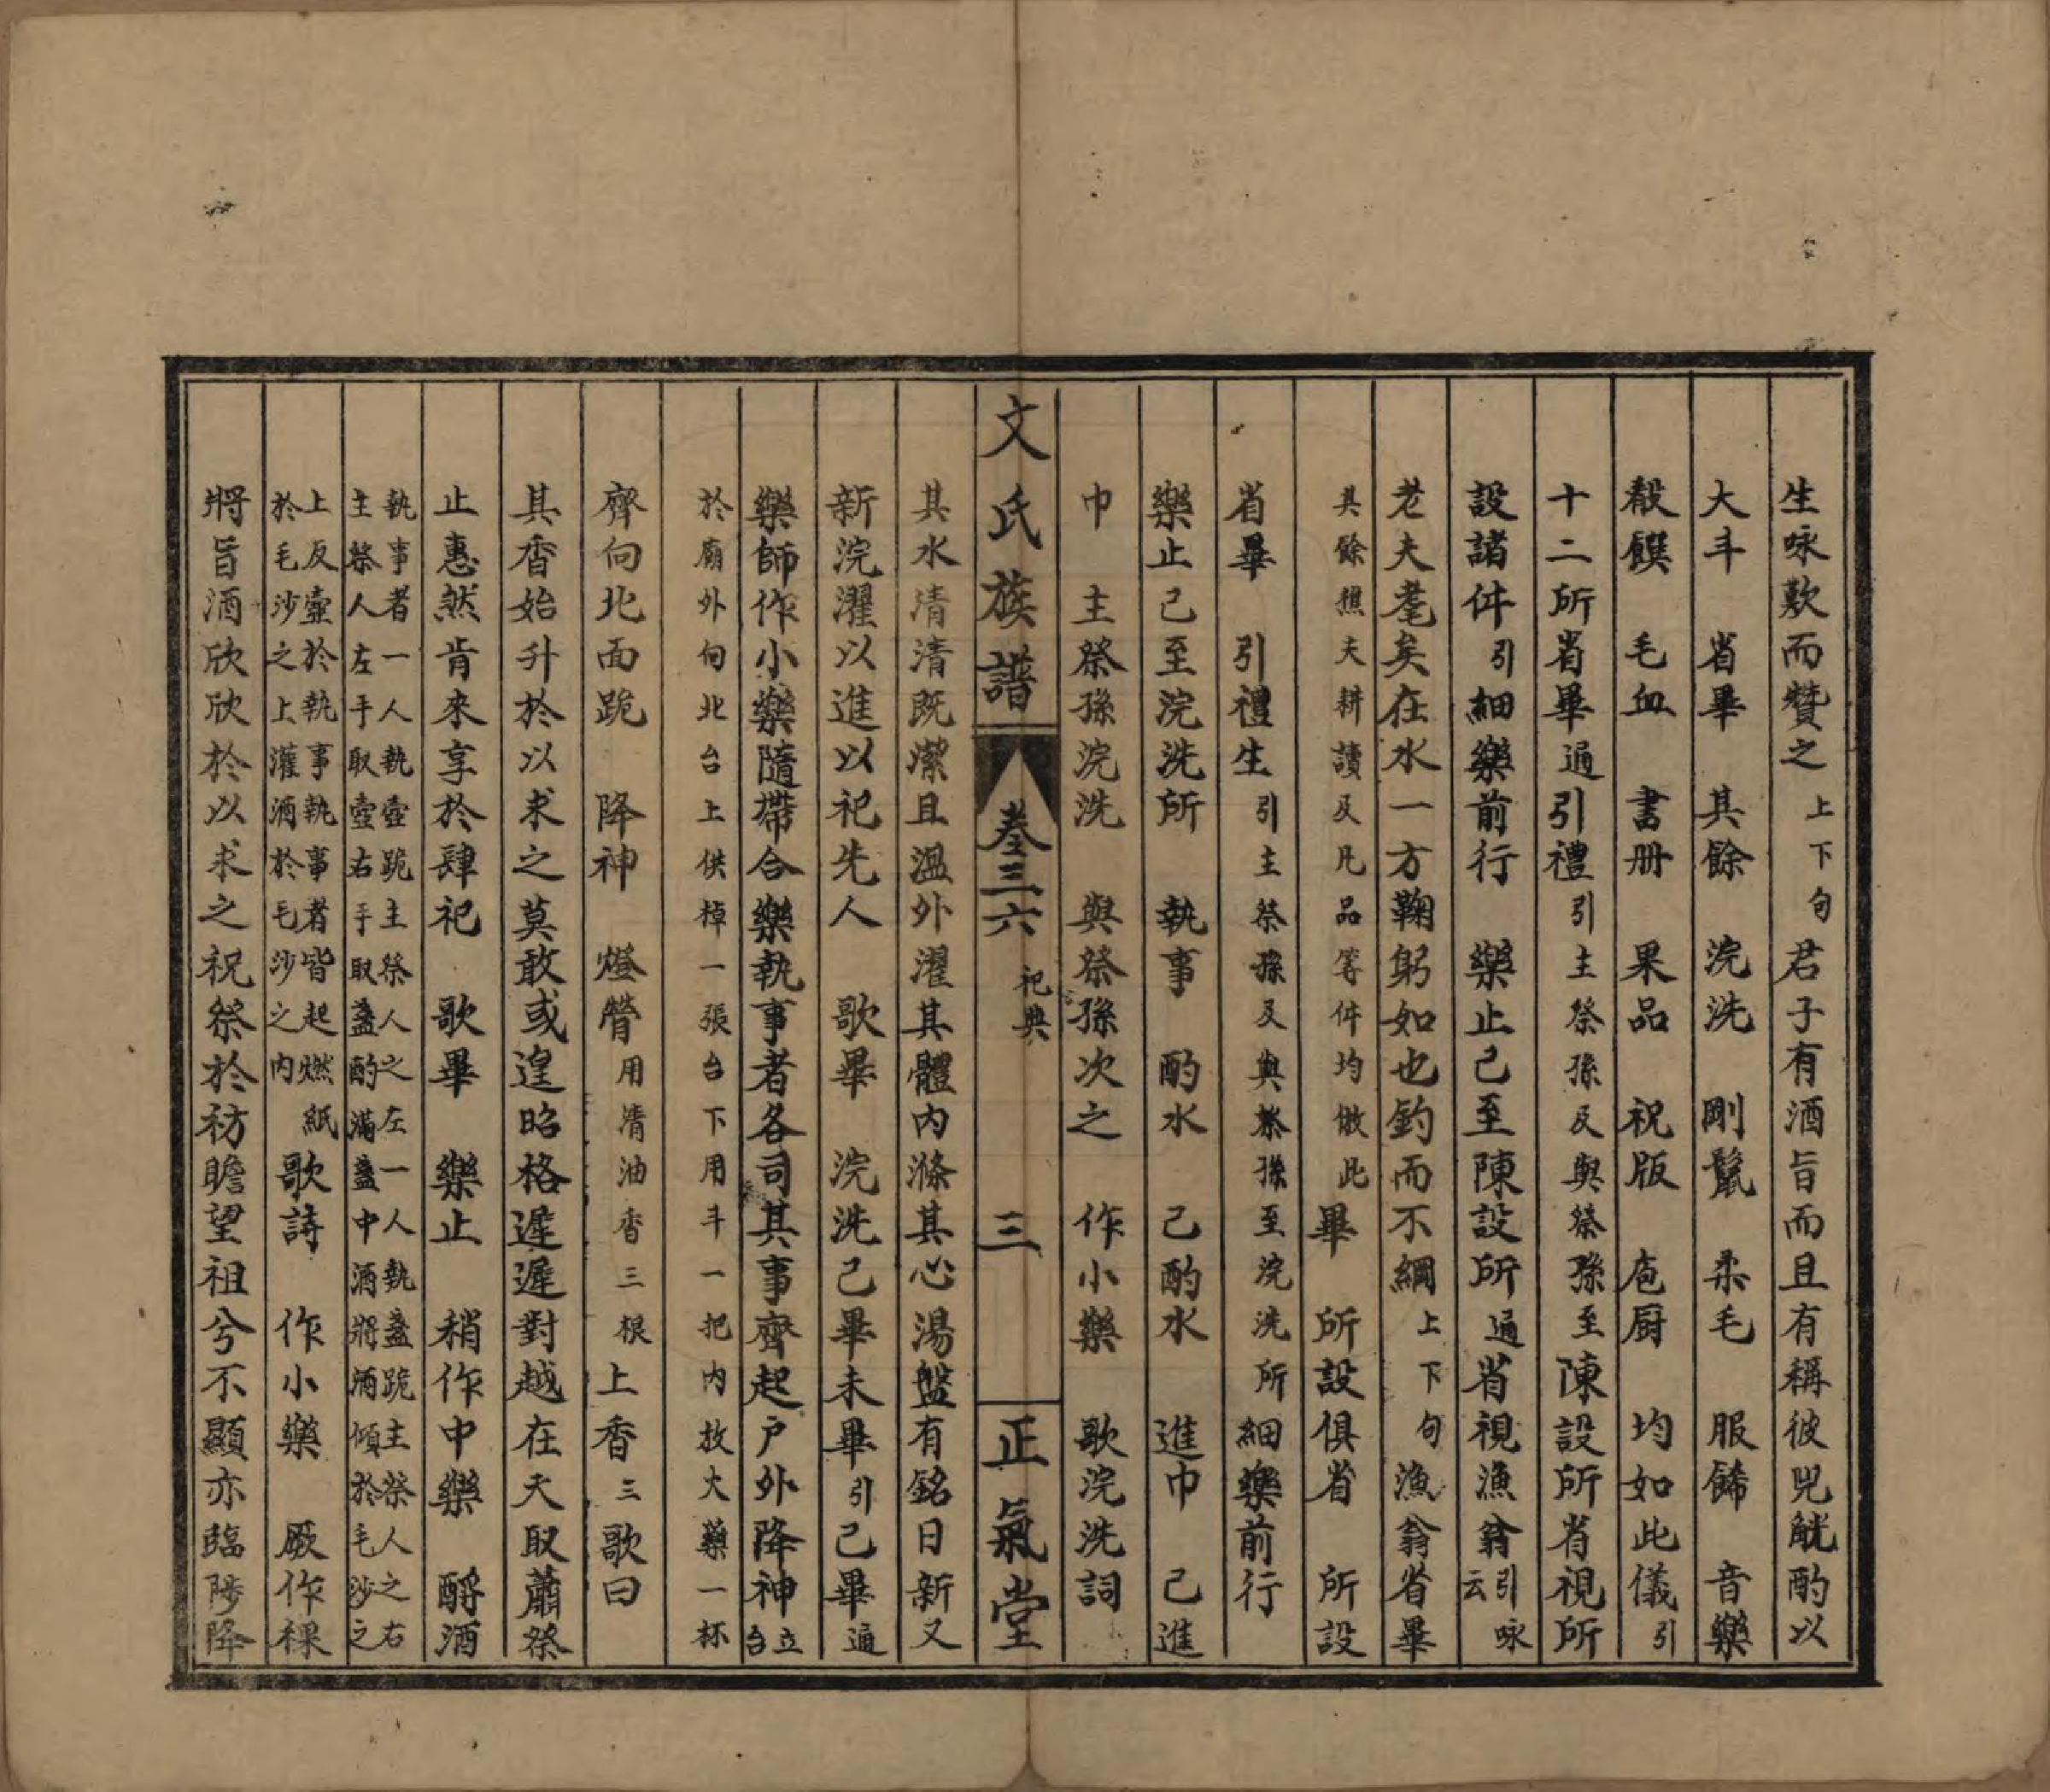 生咏歎而贊之上下句君子有酒旨而且有稱彼兕觥酌以
大斗　省畢　其餘　浣洗　剛鬣　柔毛　服餙　音樂
殽饌　毛血　書册　果品　祝版　庖厨　均如此儀引
十二所省畢通引禮引主祭孫及與祭孫至陳設所省視所
設諸件引細樂前行　樂止已至陳設所通省視漁翁引咏云
老夫耄矣在水一方鞠躬如也釣而不綱上下句漁翁省畢
其餘照夫耕讀及凡品等件均倣此畢　所設俱省　所設
省畢　引禮生引主祭孫及與祭孫至浣洗所細樂前行
樂止已至浣洗所　執事　酌水　已酌水　進巾　已進
巾　主祭孫浣洗　與祭孫次之　作小樂　歌浣洗詞
文氏族譜　卷三六　祀典　三　正氣堂
其水清清既潔且溫外濯其體內滌其心湯盤有銘日新又
新浣濯以進以祀先人　歌畢　浣洗已畢未畢引已畢通
樂師作小樂隨帶合樂執事者各司其事齊起户外降神立台
於廟外向北台上供棹一張台下用斗一把内放大藥一杯
齊向北面跪　降神　燈膋用清油香三根上香三歌曰
其香始升於以求之莫敢或遑昭格遲遲對越在天取蕭祭
止惠然肯來享於肆祀　歌畢　樂止　稍作中樂　酹酒
執事者一人執壺跪主祭人之左一人執盞跪主祭人之右
主祭人左手取壺右手取盞酌滿盞中酒將酒傾於毛沙之
上反壺於執事執事者皆起燃紙
於毛沙之上灌酒於毛沙之内　歌詩　作小樂　厥作稞
將旨酒欣欣於以求之祝祭於祊瞻望祖兮不顯亦臨陟降